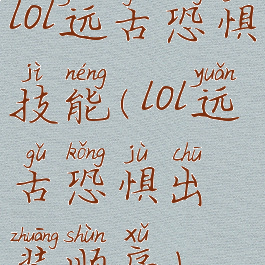 lol远古恐惧
jì néng yuǎn
技能(lol远
gǔ kǒng jù chū
古恐惧出
zhuāng shùn xǔ
装顺序)